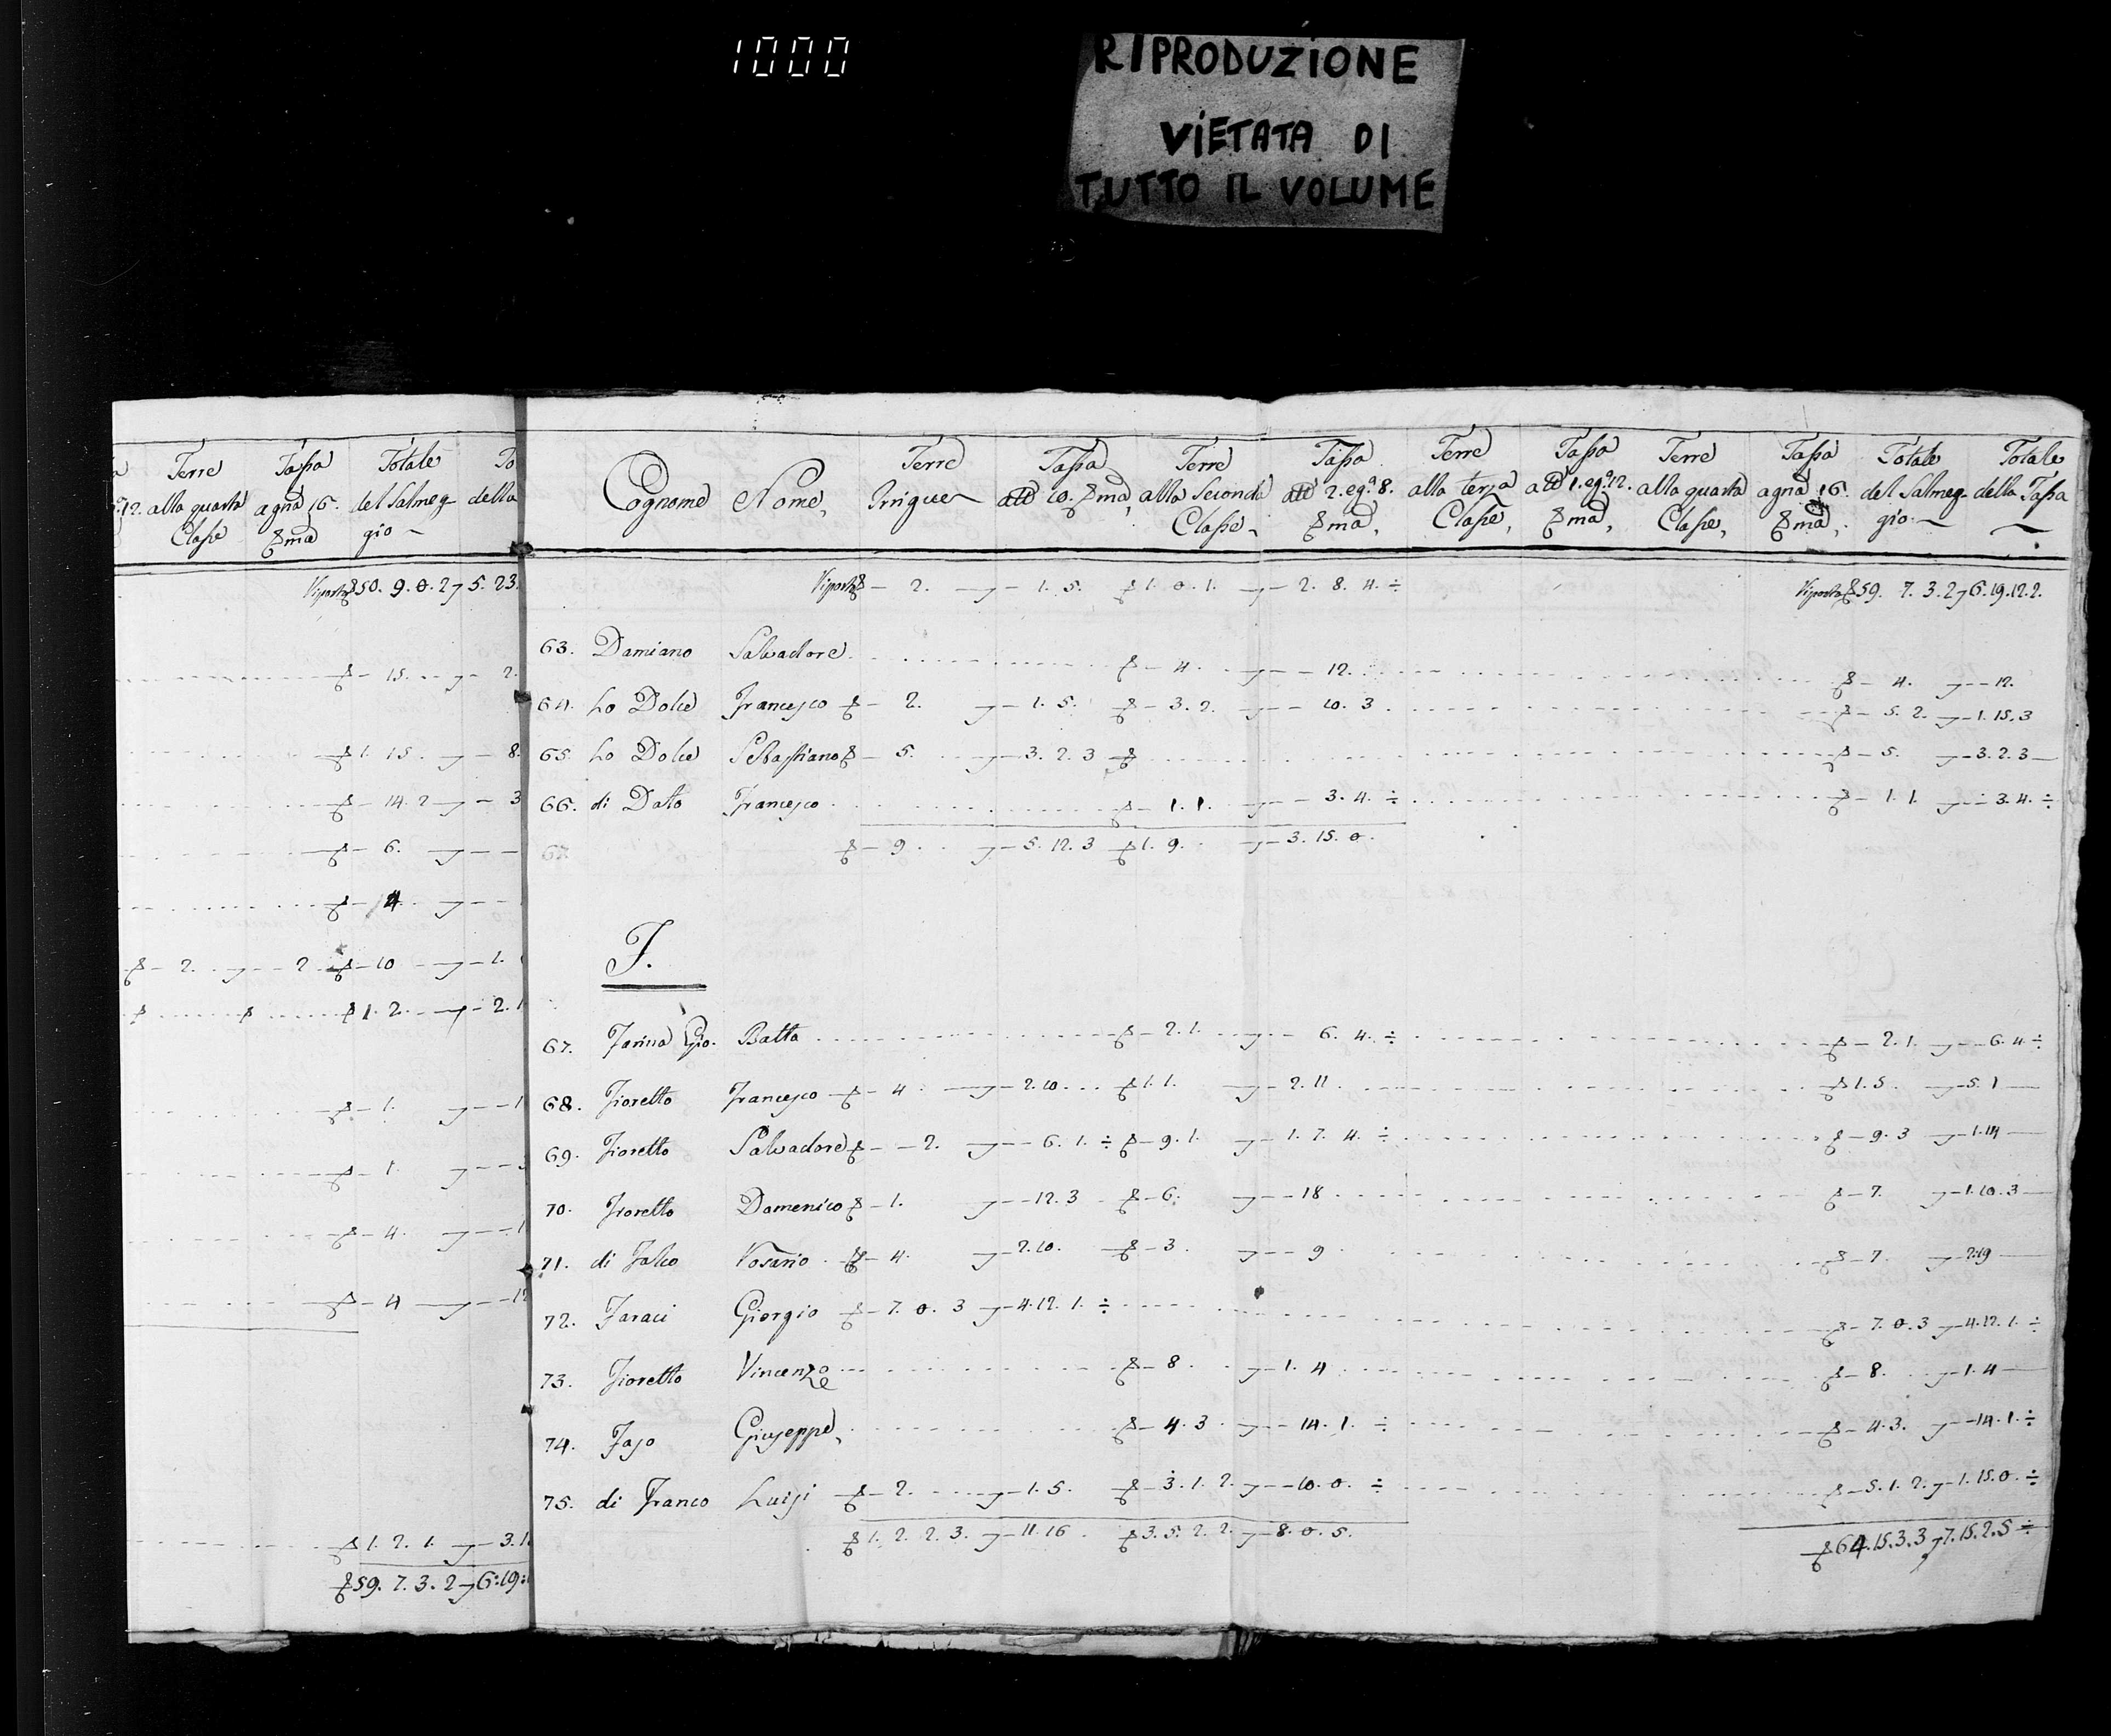 1000
RIPRODUZIONE
VIETATA DI
TUTTO IL VOLUME
Terre Tassa Totale To
12. alla quarta agnà 16. del Salmeg- della
Classe gio
Riporto 50. 9. 0. 2 5. 23.
15. 2.
1. 15. 8.
14. 2 3
6.
4
2. 2 10 1.
1. 2. 2. 1
1.
1.
4.
4
1. 2. 1. 3. 1
59. 7. 3. 2 6. 19.
Cognome Nome Terre Tassa Terre Tassa Terre Tassa Terre Tassa Totale Totale
Irrigue 10. alla Seconda 2. 8. alla terza 1. 12. alla quarta agnà 16. del Salmeg- della Tassa
Classe Classe, Classe, gio
Riporto 2. 1. 5. 1. 0. 1. 2. 8. 4. ÷ Riporto 59. 7. 3. 2 6. 19. 12. 2.
63. Damiano Salvadore 4. 12. 4. 12.
64. Lo Dolce Francesco 2. 1. 5. 3. 2. 10. 3 5. 2. 1. 15. 3
65. Lo Dolce Sebastiano 5. 3. 2. 3 5. 3. 2. 3
66. di Dato Francesco 1. 1. 3. 4. ÷ 1. 1. 3. 4. ÷
67. 9 5. 12. 3 1. 9. 3. 15. 0.
F.
67. Farina Gio. Batta 2. 1. 6. 4. ÷ 2. 1. 6. 4. ÷
68. Fioretto Francesco 4 2. 10. 1. 1. 2. 11. 1. 5. 5. 1
69. Fioretto Salvadore 2. 6. 1. ÷ 9. 1. 1. 7. 4. ÷ 9. 3 1. 14
70. Fioretto Domenico 1. 12. 3 6. 18 7. 1. 10. 3
71. di Falco Rosario 4. 2. 10. 3. 9 7. 2. 19
72. Faraci Giorgio 7. 0. 3 4. 12. 1. ÷ 7. 0. 3 4. 12. 1. ÷
73. Fioretto Vincenzo 8 1. 4 8. 1. 4
74. Faso Giuseppe 4. 3 14. 1. ÷ 4. 3. 14. 1. ÷
75. di Franco Luigi 2. 1. 5. 3. 1. 2. 10. 0. ÷ 5. 1. 2. 1. 15. 0. ÷
1. 2. 2. 3. 11. 16. 3. 5. 2. 2. 8. 0. 5. 64. 15. 3. 3 7. 15. 2. 5 ÷